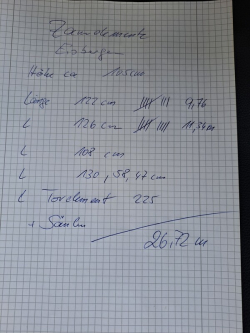 Zaunelemente
Höhe ca 105cm
Länge 122 cm 𝍸 III 9,76
L 126 cm 𝍸 IIII 11,34m
L 108 cm
L 130, 58, 47 cm
L Torelement 225
+ Säulen
26,72 m